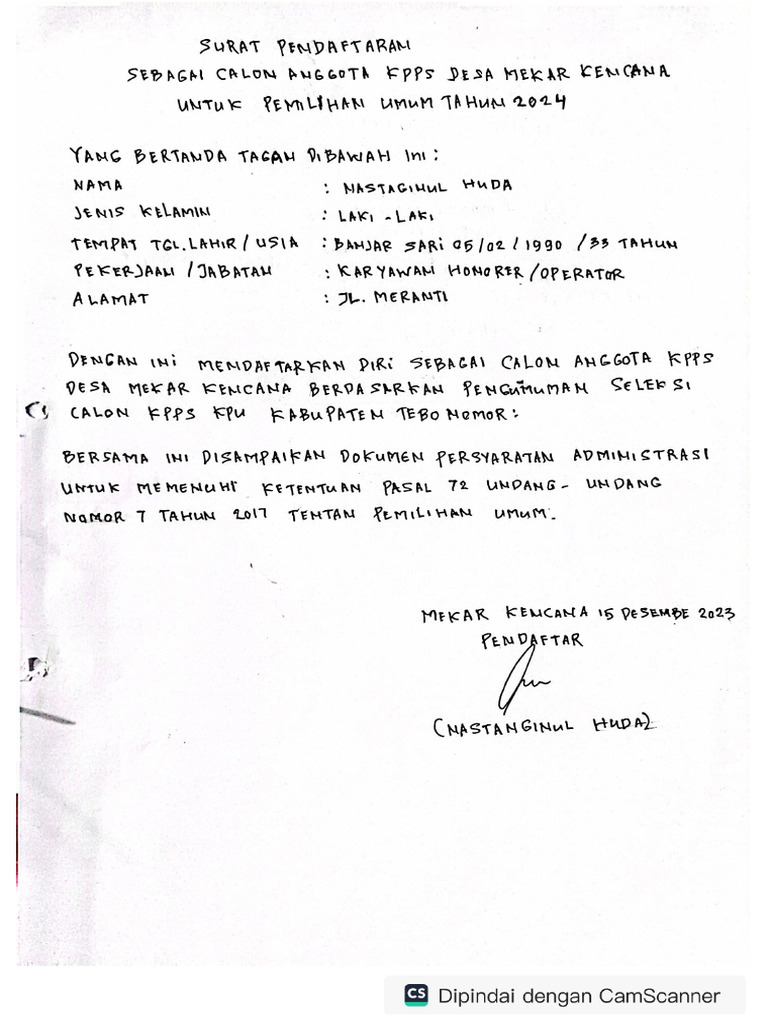 SURAT PENDAFTARAN
SEBAGAI CALON ANGGOTA KPPS DESA MEKAR KENCANA
UNTUK PEMILIHAN UMUM TAHUN 2024
YANG BERTANDA TAGAN DIBAWAH INI :
NAMA : NASTAGINUL HUDA
JENIS KELAMIN : LAKI - LAKI
TEMPAT TGL.LAHIR / USIA : BANJAR SARI 05/02/1990 /33 TAHUN
PEKERJAAN /JABATAN : KARYAWAN HONORER/OPERATOR
ALAMAT : JL. MERANTI
DENGAN INI MENDAFTARKAN DIRI SEBAGAI CALON ANGGOTA KPPS
DESA MEKAR KENCANA BERDASARKAN PENGUMUMAN SELEKSI
CALON KPPS KPU KABUPATEN TEBO NOMOR :
BERSAMA INI DISAMPAIKAN DOKUMEN PERSYARATAN ADMINISTRASI
UNTUK MEMENUHI KETENTUAN PASAL 72 UNDANG - UNDANG
NOMOR 7 TAHUN 2017 TENTAN PEMILIHAN UMUM.
MEKAR KENCANA 15 DESEMBE 2023
PENDAFTAR
(NASTANGINUL HUDA)
CS Dipindai dengan CamScanner